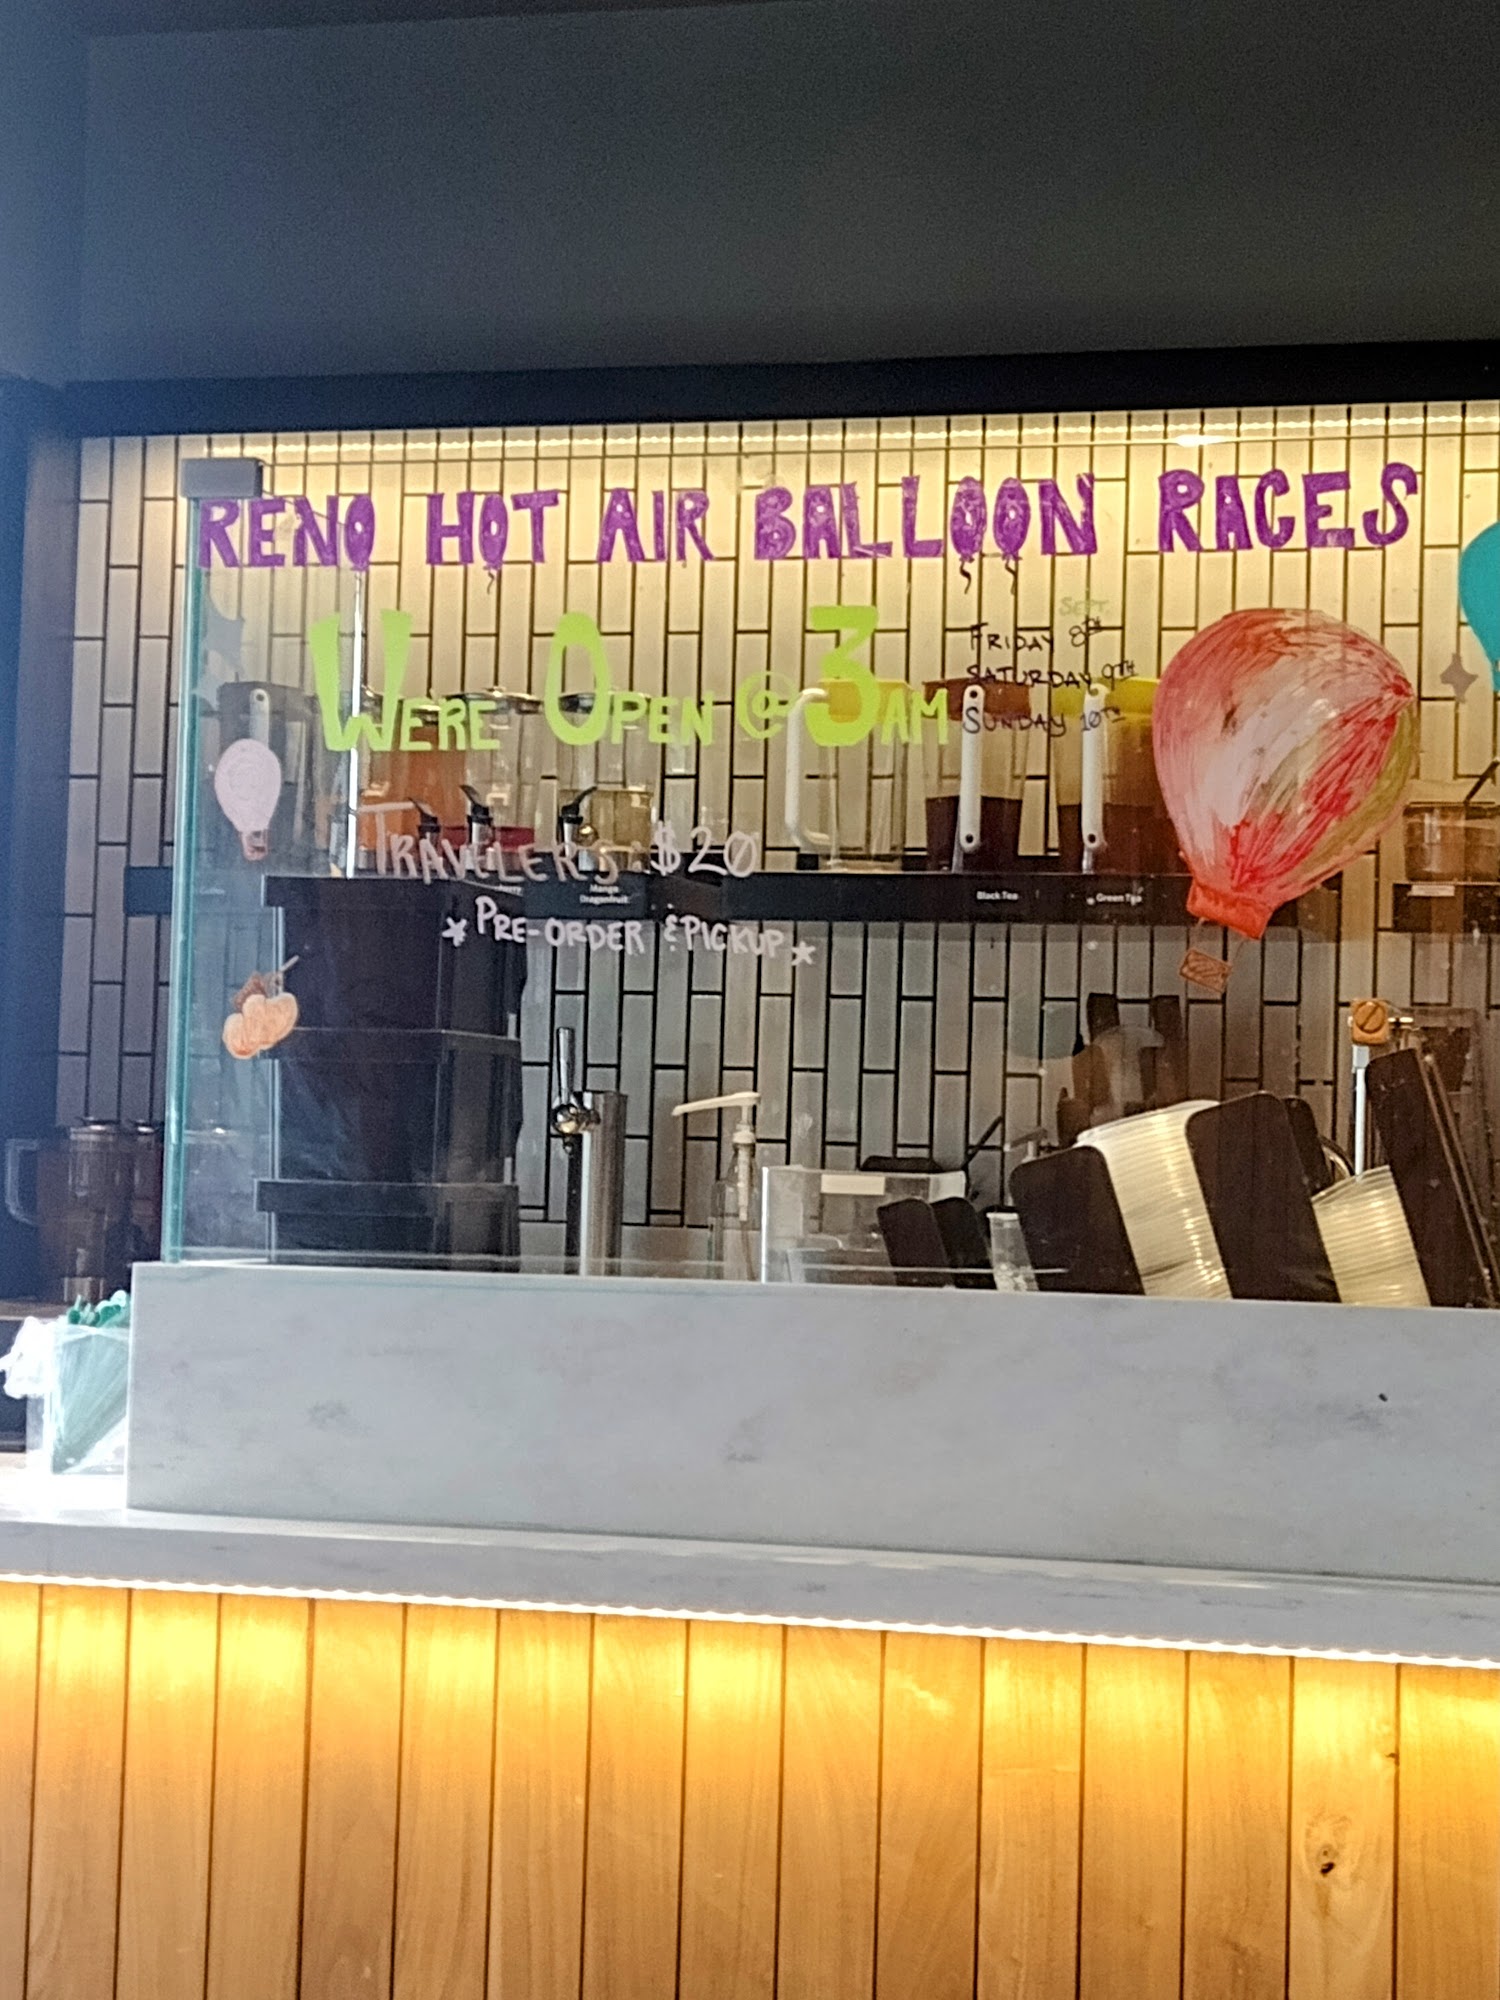 RENO HOT AIR BALLOON RACES
WERE OPEN @ 3AM
SEPT.
FRIDAY 8TH
SATURDAY 9TH
SUNDAY 10TH
TRAVELERS $20
Mango
Dragonfruit
Black Tea
Green Tea
* PRE-ORDER & PICKUP *